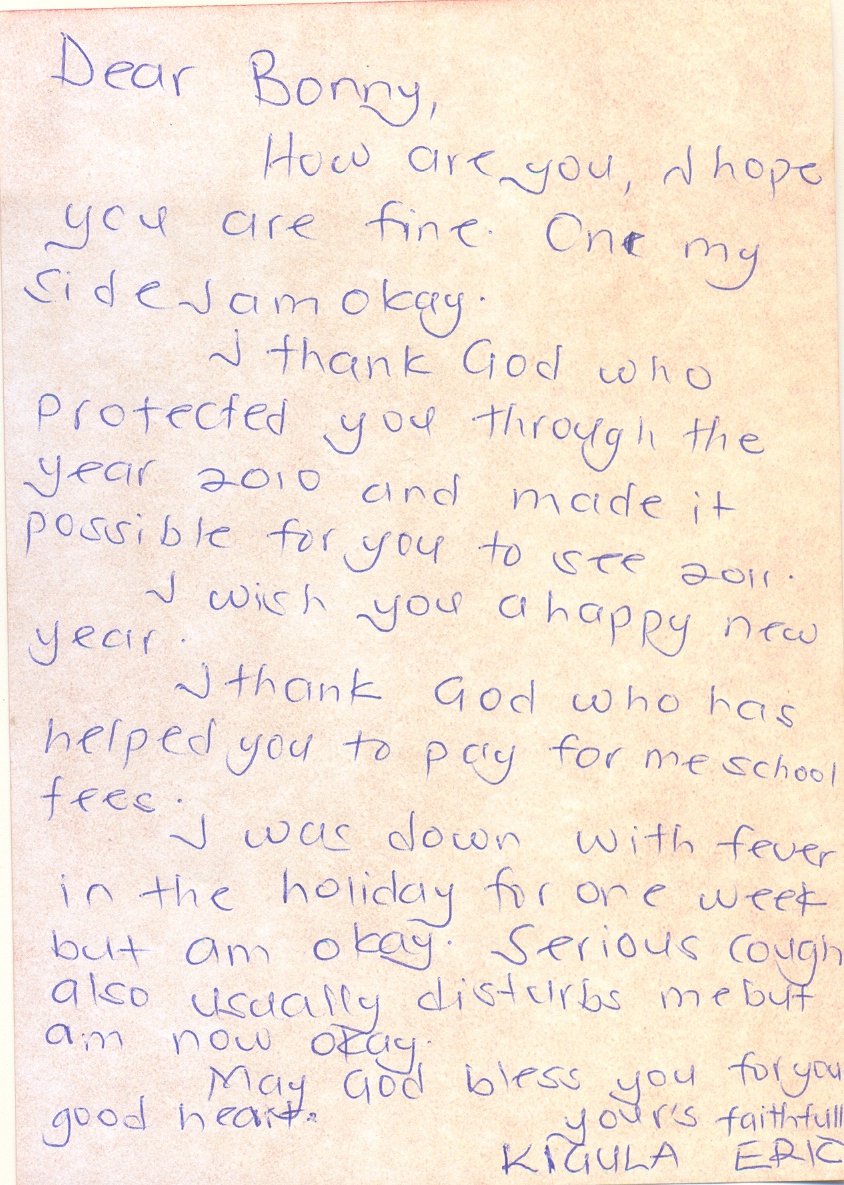 Dear Bonny,
How are you, I hope
you are fine. One my
side I am okay.
I thank God who
protected you through the
year 2010 and made it
possible for you to see 2011.
I wish you a happy new
year.
I thank God who has
helped you to pay for me school
fees.
I was down with fever
in the holiday for one week
but am okay. Serious cough
also usually disturbs me but
am now okay.
May God bless you for you
good heart.
your's faithfull
KIGULA ERIC